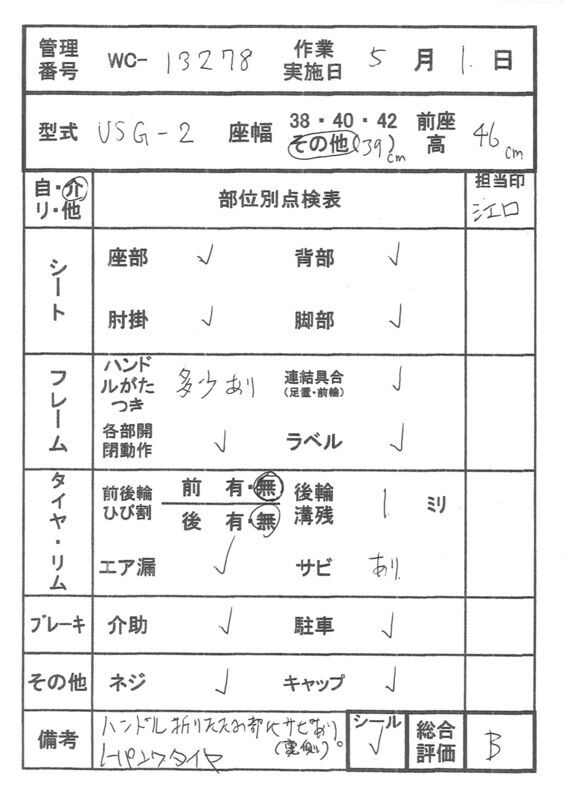 管理番号 WC- 13278 作業実施日 5 月 1 日
型式 USG-2 座幅 38・40・42 その他(39)cm 前座高 46 cm
自・介 リ・他 部位別点検表 担当印 江口
シート 座部 ✓ 背部 ✓
肘掛 ✓ 脚部 ✓
フレーム ハンドルがたつき 多少あり 連結具合(足置・前輪) ✓
各部開閉動作 ✓ ラベル ✓
タイヤ・リム 前後輪ひび割 前 有・無 後輪溝残 1 ミリ
後 有・無
エア漏 ✓ サビ あり
ブレーキ 介助 ✓ 駐車 ✓
その他 ネジ ✓ キャップ ✓
備考 ハンドル折りたたみ部にサビあり シール ✓ 総合評価 B
(裏側)。
ノーパンクタイヤ